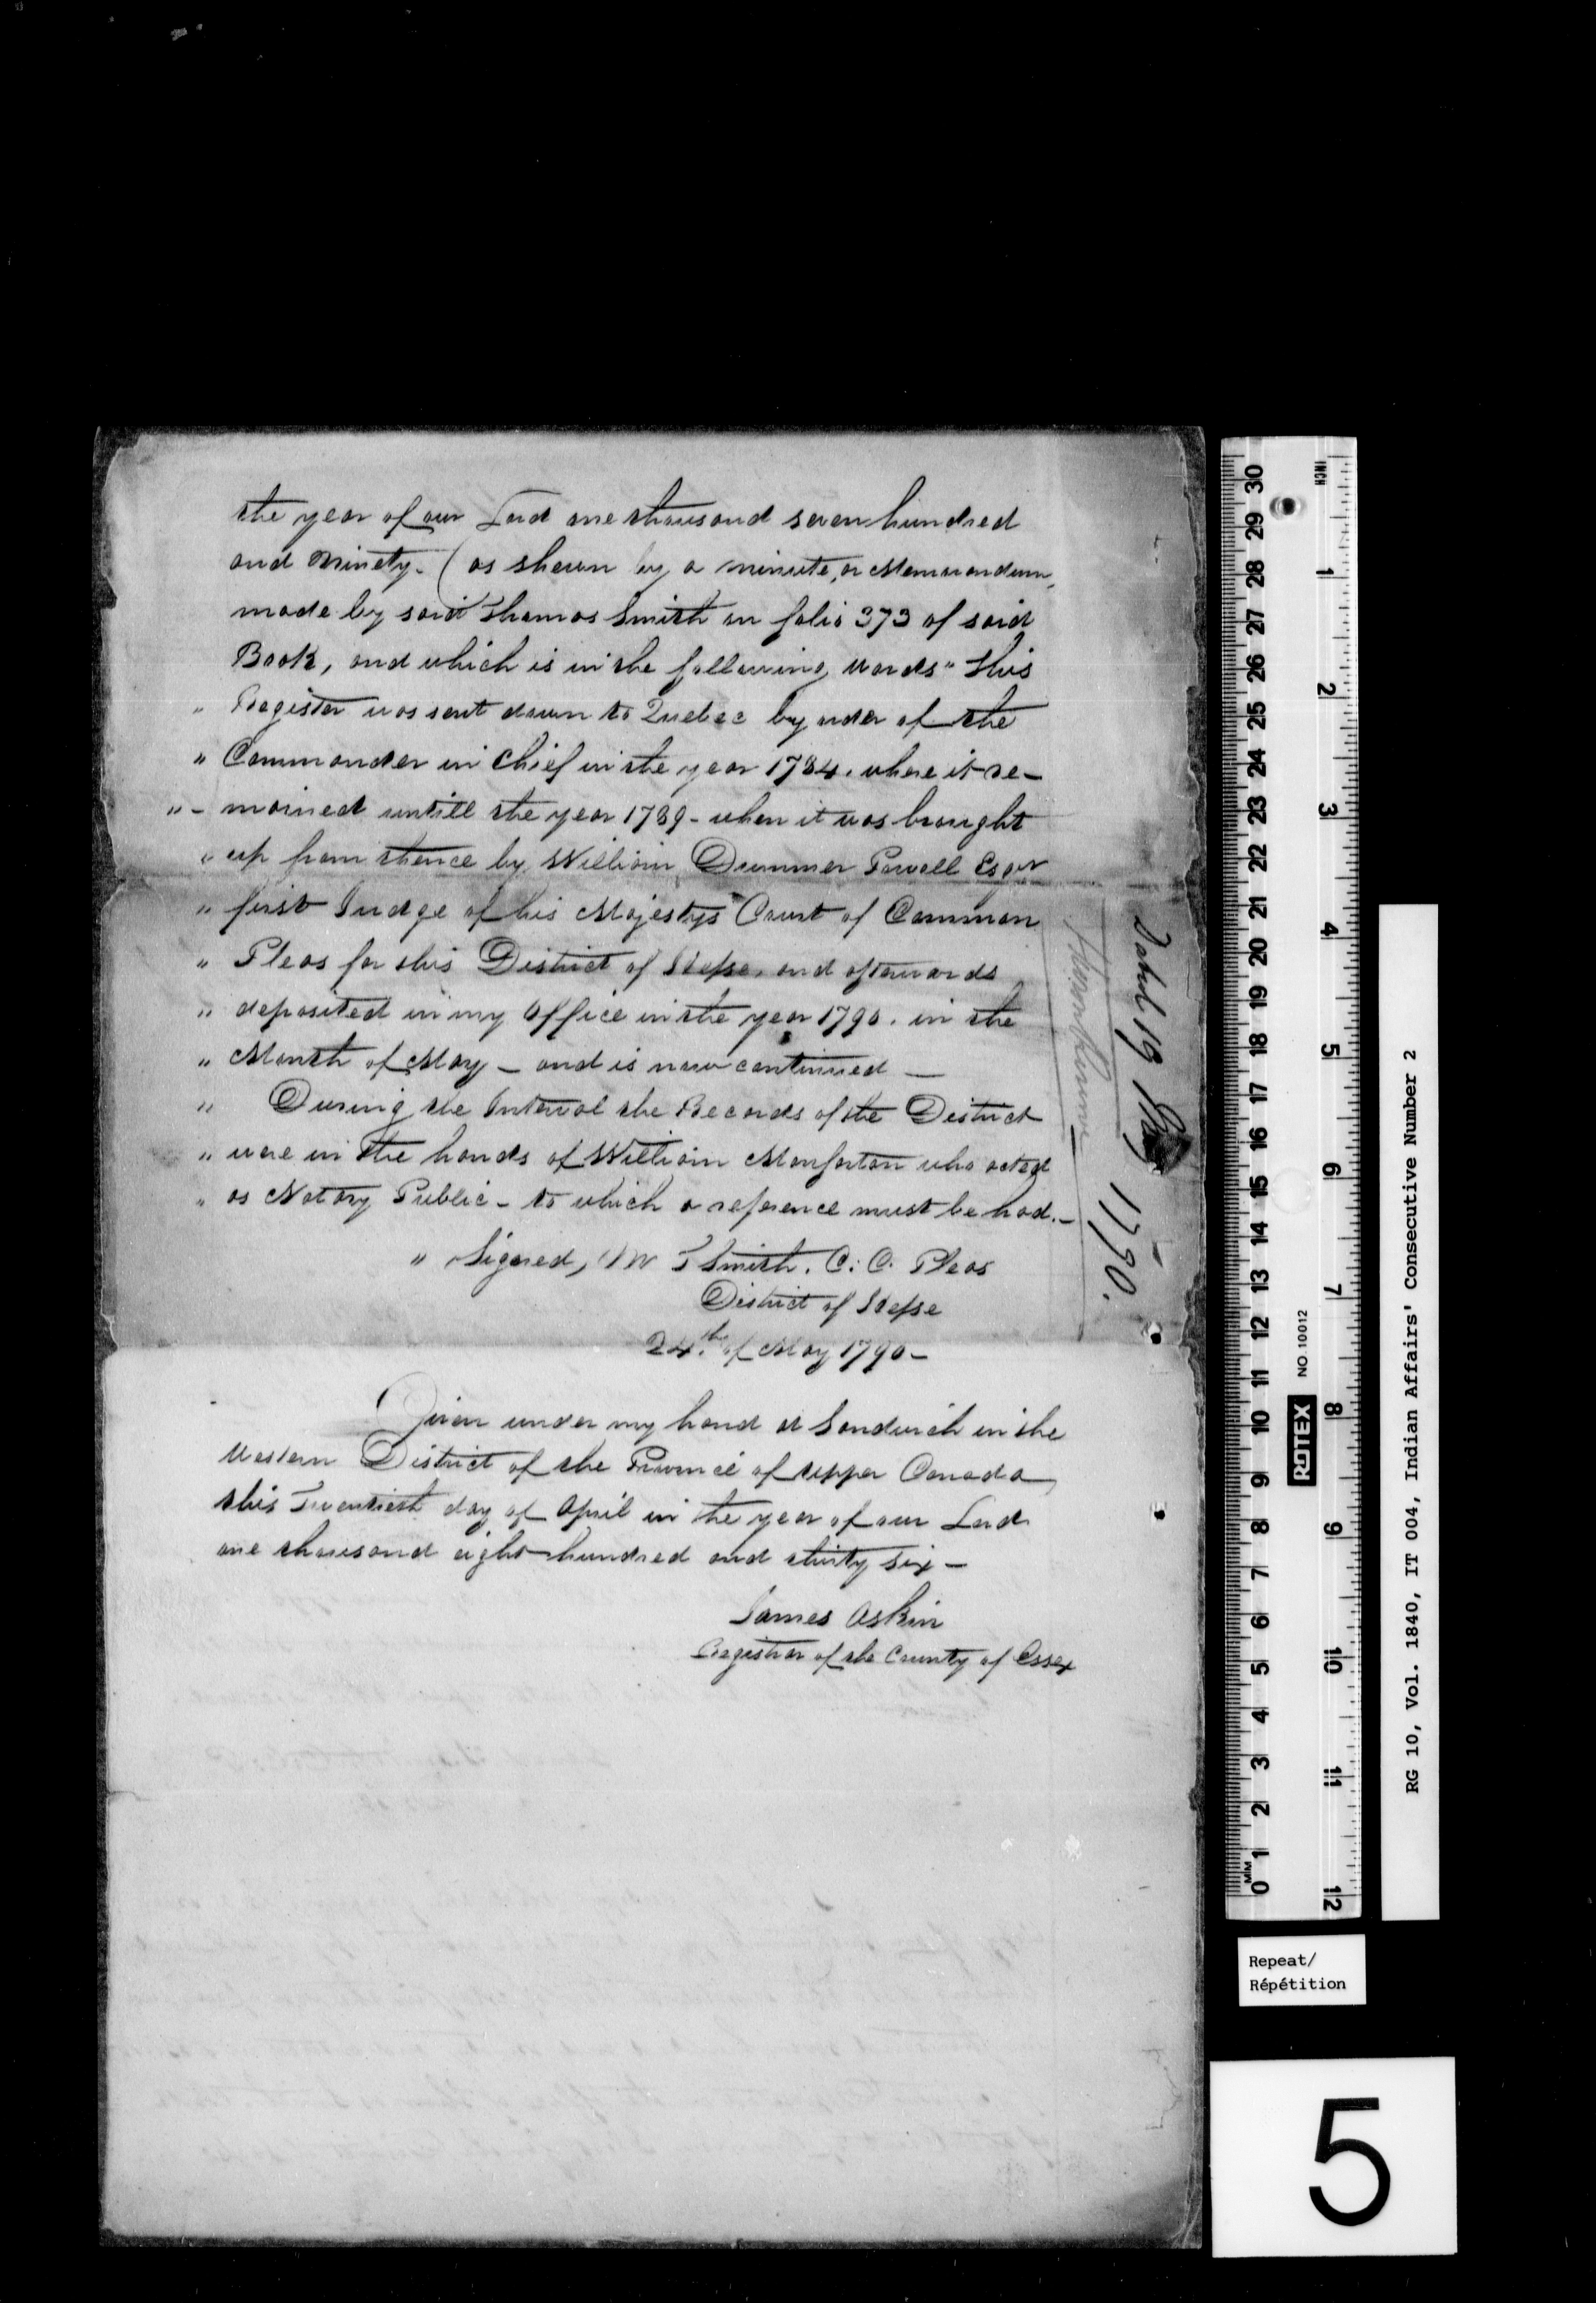 the year of our Lord one thousand seven hundred
and Ninety. (as shewn by a minute, or Memorandum,
made by said Thomas Smith on folio 373 of said
Book, and which is in the following words " This
" Register was sent down to Quebec by order of the
" Commander in Chief in the year 1784. where it re-
" - mained untill the year 1789 - when it was brought
" up from thence by William Dummer Powell Esqr
" first Judge of his Majestys Court of Common
" Pleas for this District of Hesse, and afterwards
" deposited in my Office in the year 1790. in the
" Month of May - and is now continued -
" During the Interval the Records of the District
" were in the hands of William Monforton who acted
" as Notary Public - to which a reference must be had. -
" Signed, T Smith. C. C. Pleas
District of Hesse
24th. of May 1790 -
Given under my hand at Sandwich in the
Western District of the Province of upper Canada,
this Twentieth day of April in the year of our Lord
one thousand eight hundred and thirty six -
James Askin
Registrar of the County of Essex
Dated 19 May 1790.
INCH
1 2 3 4 5 6 7 8 9 10 11 12
30 29 28 27 26 25 24 23 22 21 20 19 18 17 16 15 14 13 12 11 10 9 8 7 6 5 4 3 2 1 0
MM
NO 10012
ROTEX
RG 10, Vol. 1840, IT 004, Indian Affairs' Consecutive Number 2
Repeat/
Répétition
5